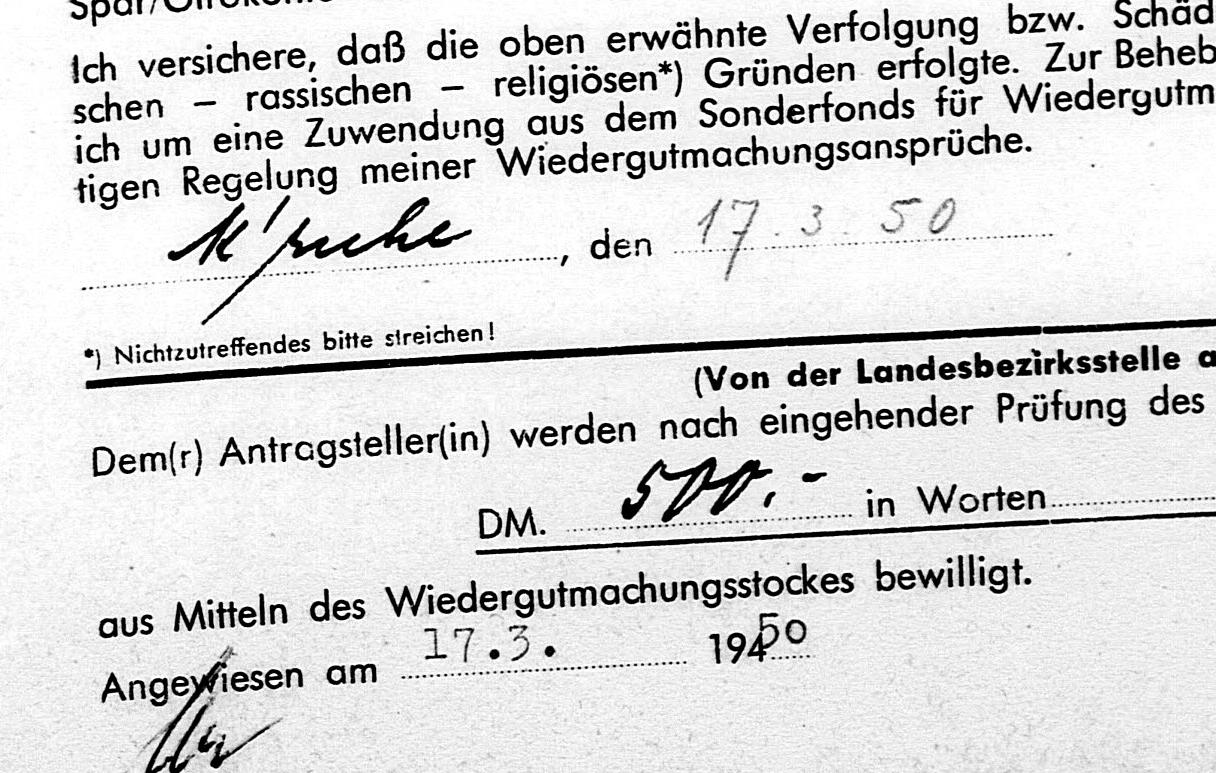 Spar/Giroko
Ich versichere, daß die oben erwähnte Verfolgung bzw. Schäd
schen — rassischen — religiösen*) Gründen erfolgte. Zur Beheb
ich um eine Zuwendung aus dem Sonderfonds für Wiedergutm
tigen Regelung meiner Wiedergutmachungsansprüche.
K'ruhe, den 17.3.50
*) Nichtzutreffendes bitte streichen!
(Von der Landesbezirksstelle a
Dem(r) Antragsteller(in) werden nach eingehender Prüfung des
DM. 500.- in Worten
aus Mitteln des Wiedergutmachungsstockes bewilligt.
Angewiesen am 17.3. 19450